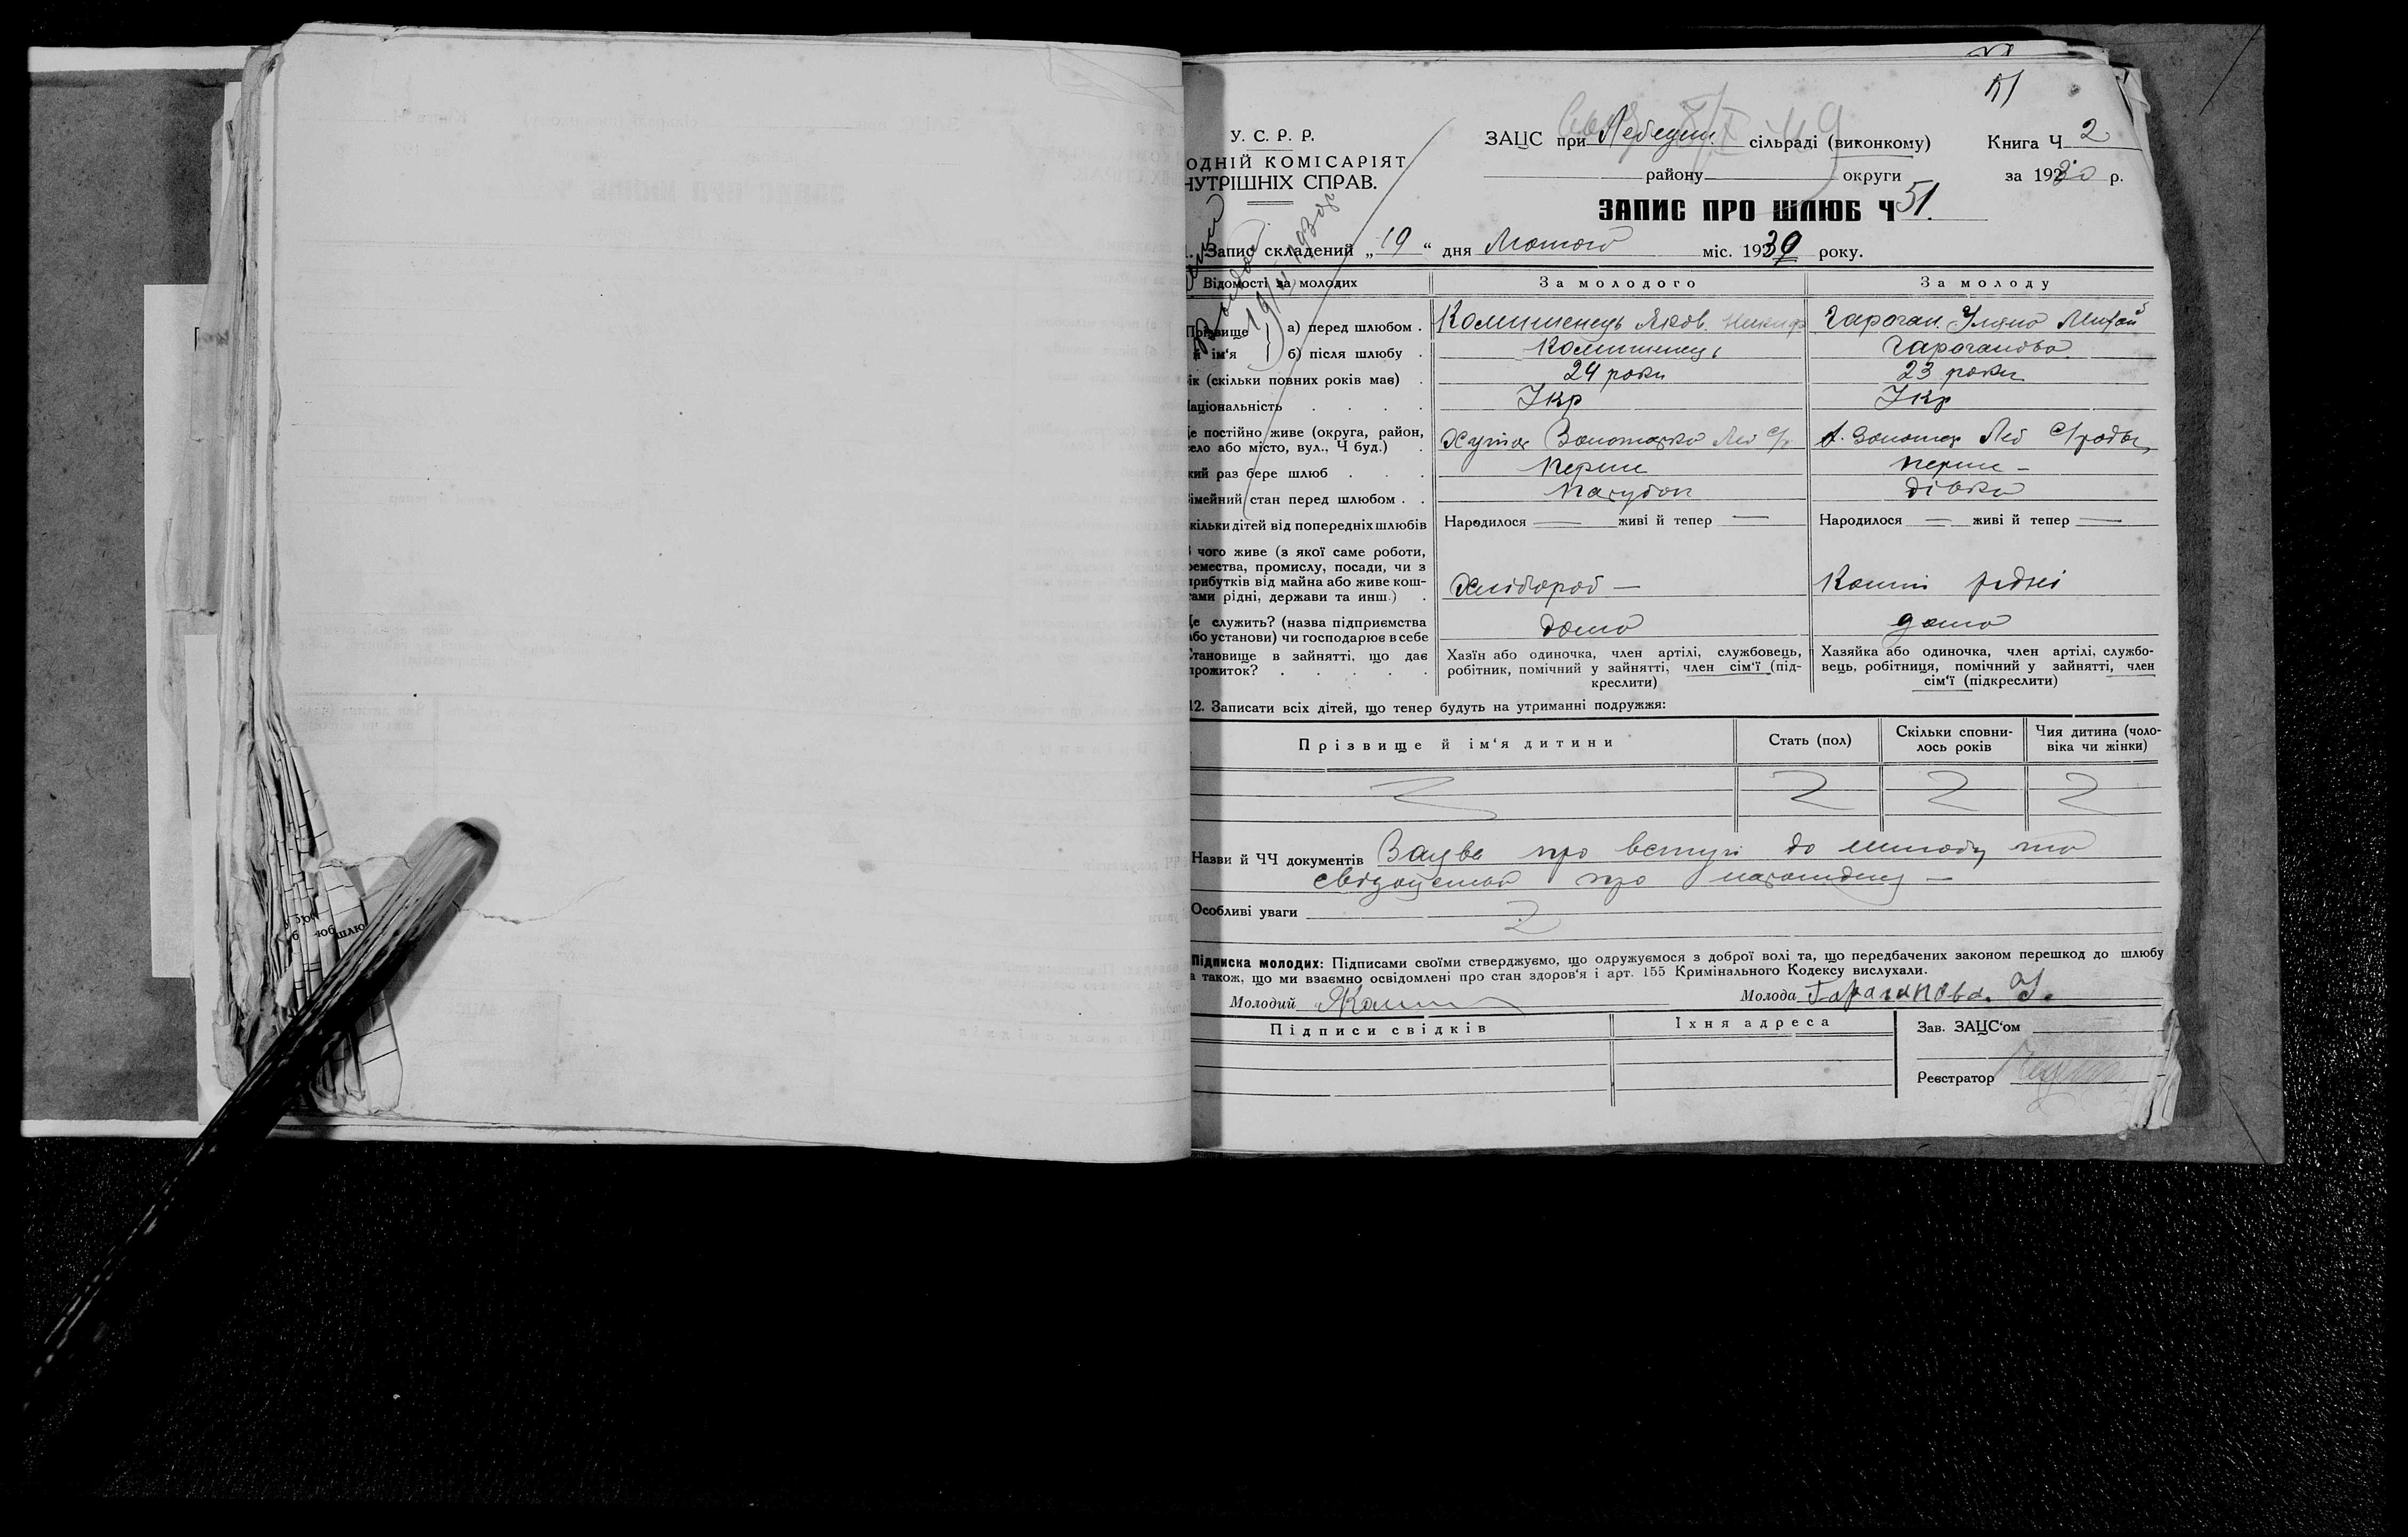 51
У. С. Р. Р.
ОДНІЙ КОМІСАРІЯТ
НУТРІШНІХ СПРАВ.
ЗАЦС при Лебедин. сільраді (виконкому)
Книга Ч 2
району округи
за 1930 р.
ЗАПИС ПРО ШЛЮБ Ч 51.
Запис складений „19“ дня Лютого міс. 1930 року.
Відомості за молодих
За молодого
За молоду
Прізвище й ім'я
а) перед шлюбом . Яков. Гараган Уляна
б) після шлюбу . Гараганова
ік (скільки повних років має) . 24 роки 23 роки
аціональність . . . . Укр Укр
е постійно живе (округа, район,
ело або місто, вул., Ч буд.) . Хутор
кий раз бере шлюб . . . перше перше –
імейний стан перед шлюбом . . парубок дівка
кільки дітей від попередніх шлюбів Народилося — живі й тепер — Народилося — живі й тепер —
чого живе (з якої саме роботи,
ремества, промислу, посади, чи з
прибутків від майна або живе кош-
тами рідні, держави та инш.) . Хлібороб — Кошти рідні
е служить? (назва підприємства
або установи) чи господарює в себе дома дома
тановище в зайнятті, що дає
прожиток? . . . . .
Хазїн або одиночка, член артілі, службовець,
робітник, помічний у зайнятті, член сім'ї (під-
креслити)
Хазяйка або одиночка, член артілі, службо-
вець, робітниця, помічний у зайнятті, член
сім'ї (підкреслити)
12. Записати всіх дітей, що тепер будуть на утриманні подружжя:
Прізвище й ім'я дитини
Стать (пол)
Скільки сповни-
лось років
Чия дитина (чоло-
віка чи жінки)
Назви й ЧЧ документів Заява про вступ до шлюбу та
про
Особливі уваги
Підписка молодих: Підписами своїми стверджуємо, що одружуємося з доброї волі та, що передбачених законом перешкод до шлюбу
а також, що ми взаємно освідомлені про стан здоров'я і арт. 155 Кримінального Кодексу вислухали.
Молодий
Молода Гараганова. У.
Підписи свідків
Їхня адреса
Зав. ЗАЦС'ом
Реєстратор